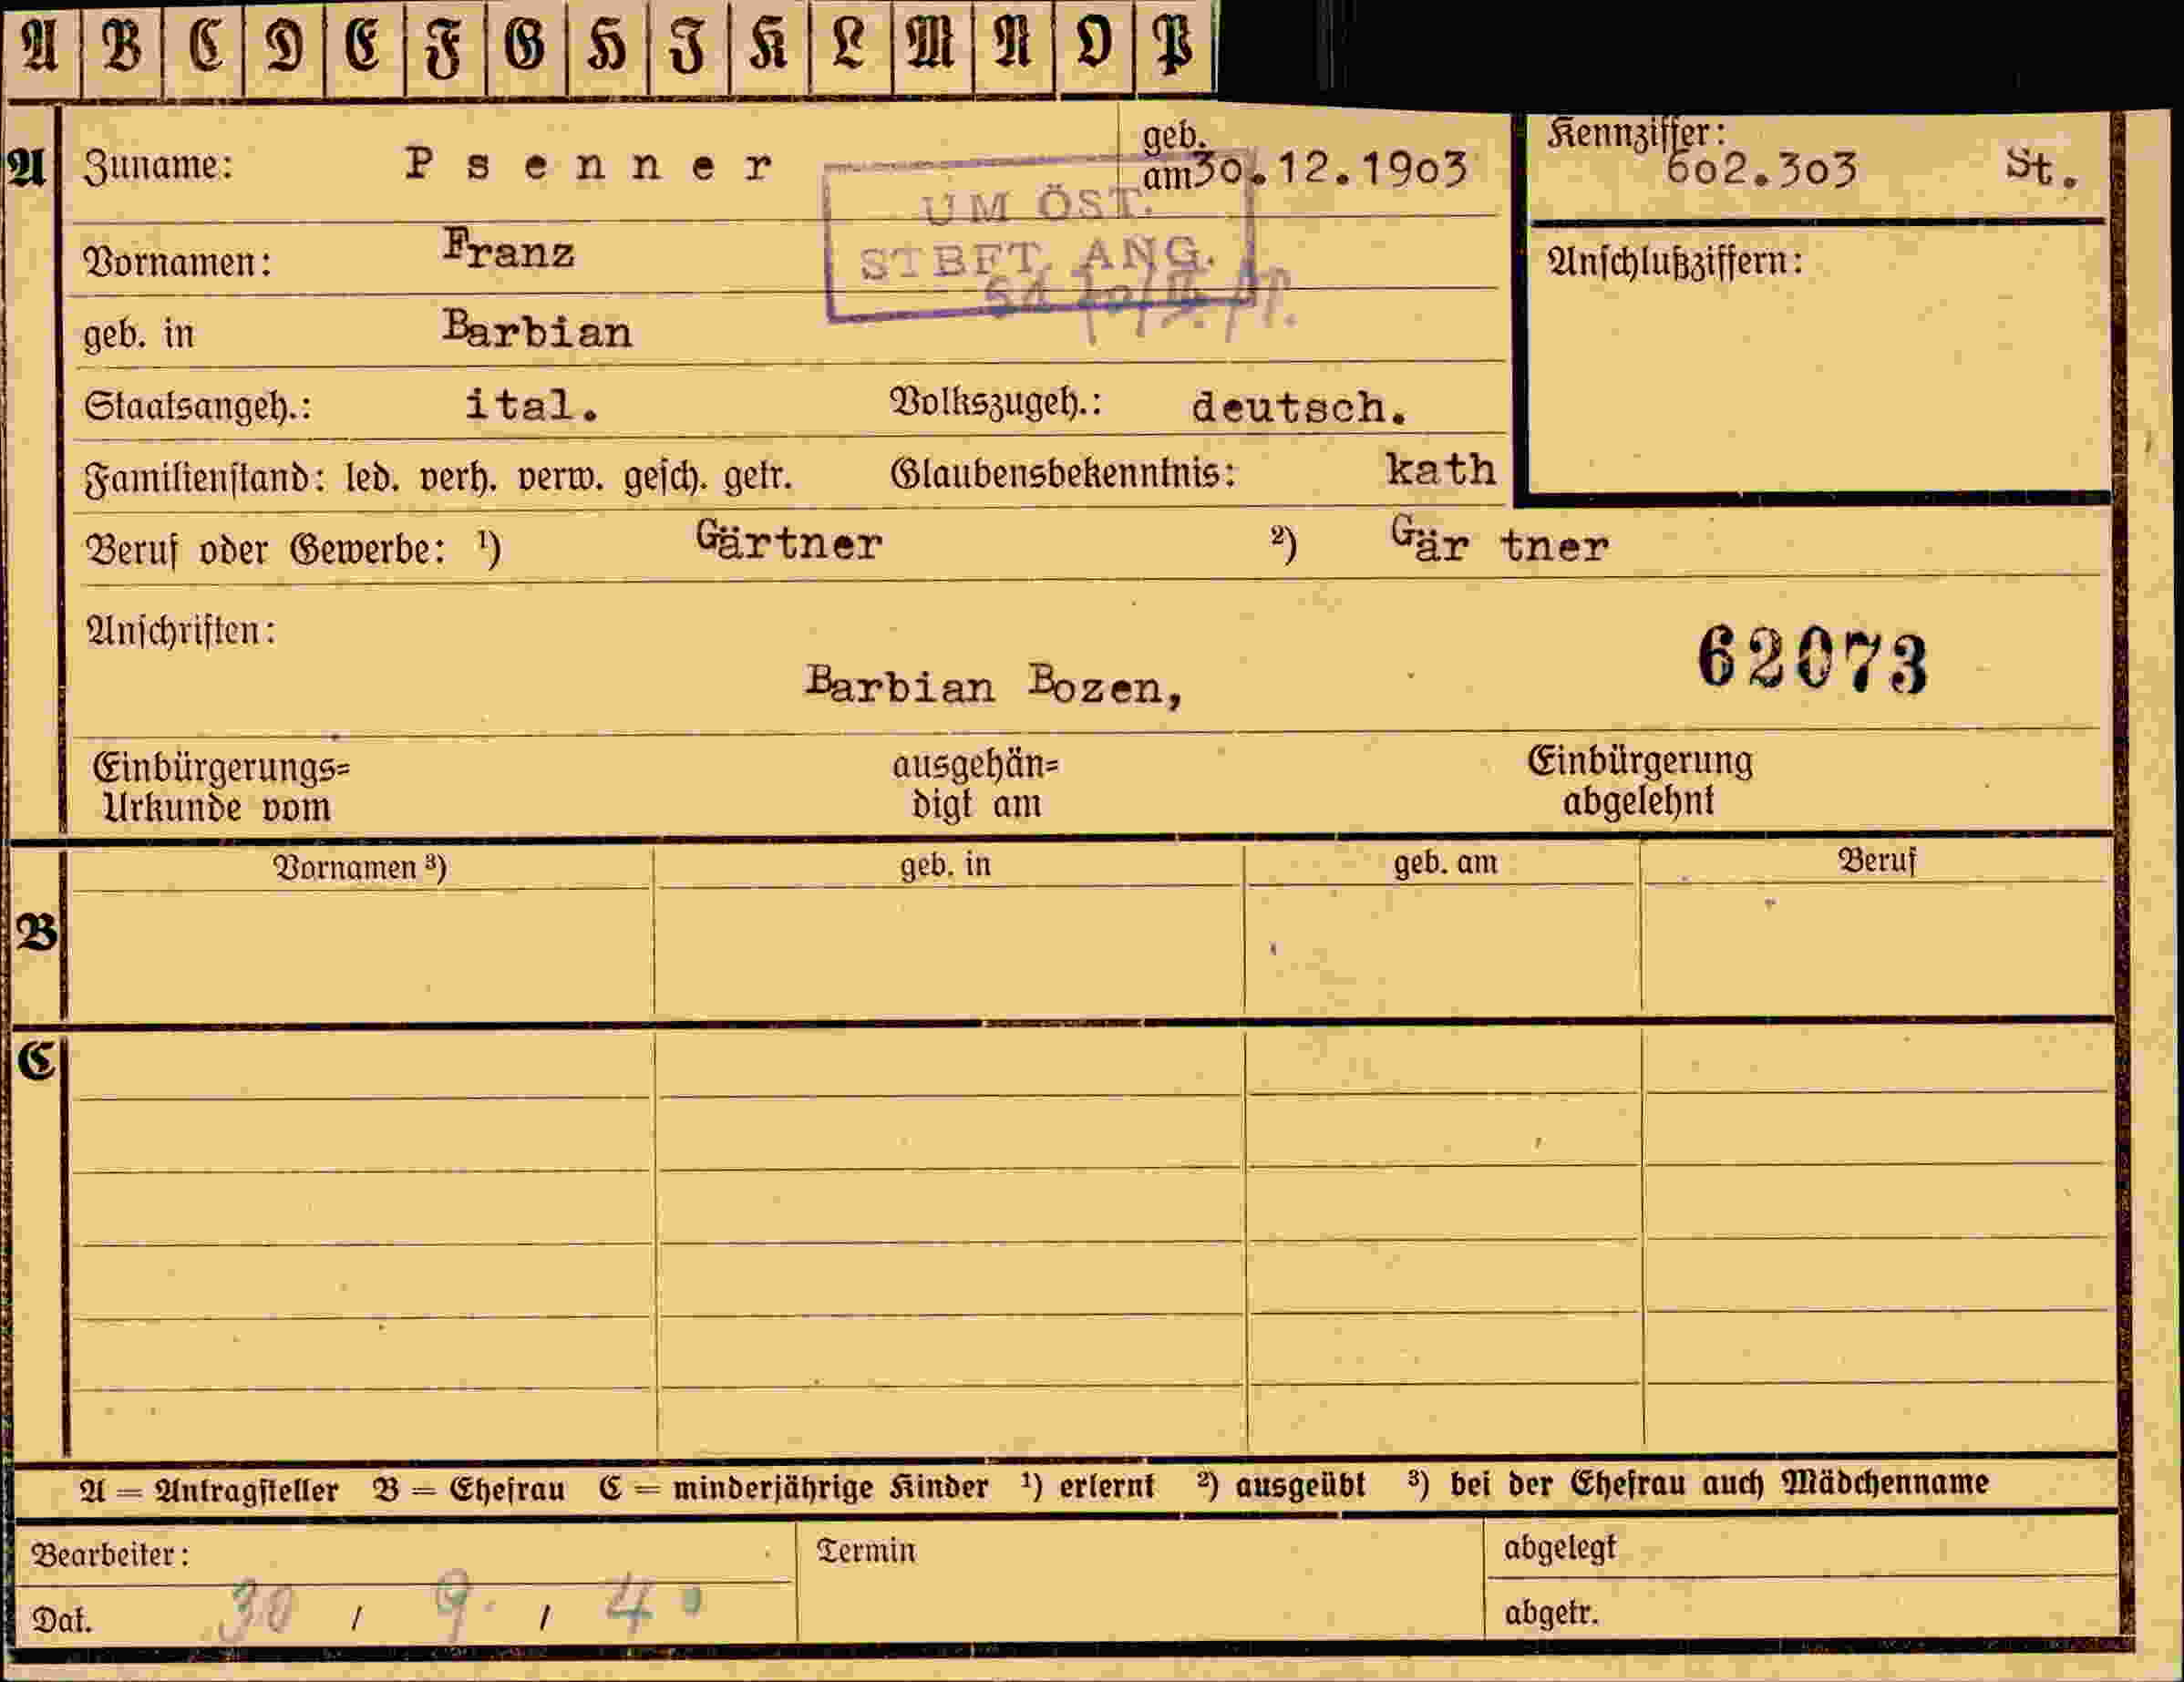 A B C D E F G H I K L M N O P
A Zuname: Psenner geb. am 30.12.1903 Kennziffer: 602.303 St.
UM ÖST.
STBFT. ANG.
Vornamen: Franz Anschlußziffern:
geb. in Barbian
Staatsangeh.: ital. Volkszugeh.: deutsch.
Familienstand: led. verh. verw. gesch. getr. Glaubensbekenntnis: kath
Beruf oder Gewerbe: ¹) Gärtner ²) Gär tner
Anschriften:
62073
Barbian Bozen,
Einbürgerungs= Urkunde vom ausgehän= digt am Einbürgerung abgelehnt
Vornamen ³) geb. in geb. am Beruf
B
C
A = Antragsteller B = Ehefrau C = minderjährige Kinder ¹) erlernt ²) ausgeübt ³) bei der Ehefrau auch Mädchenname
Bearbeiter: Termin abgelegt
Dat. 30 / 9. / 40 abgetr.